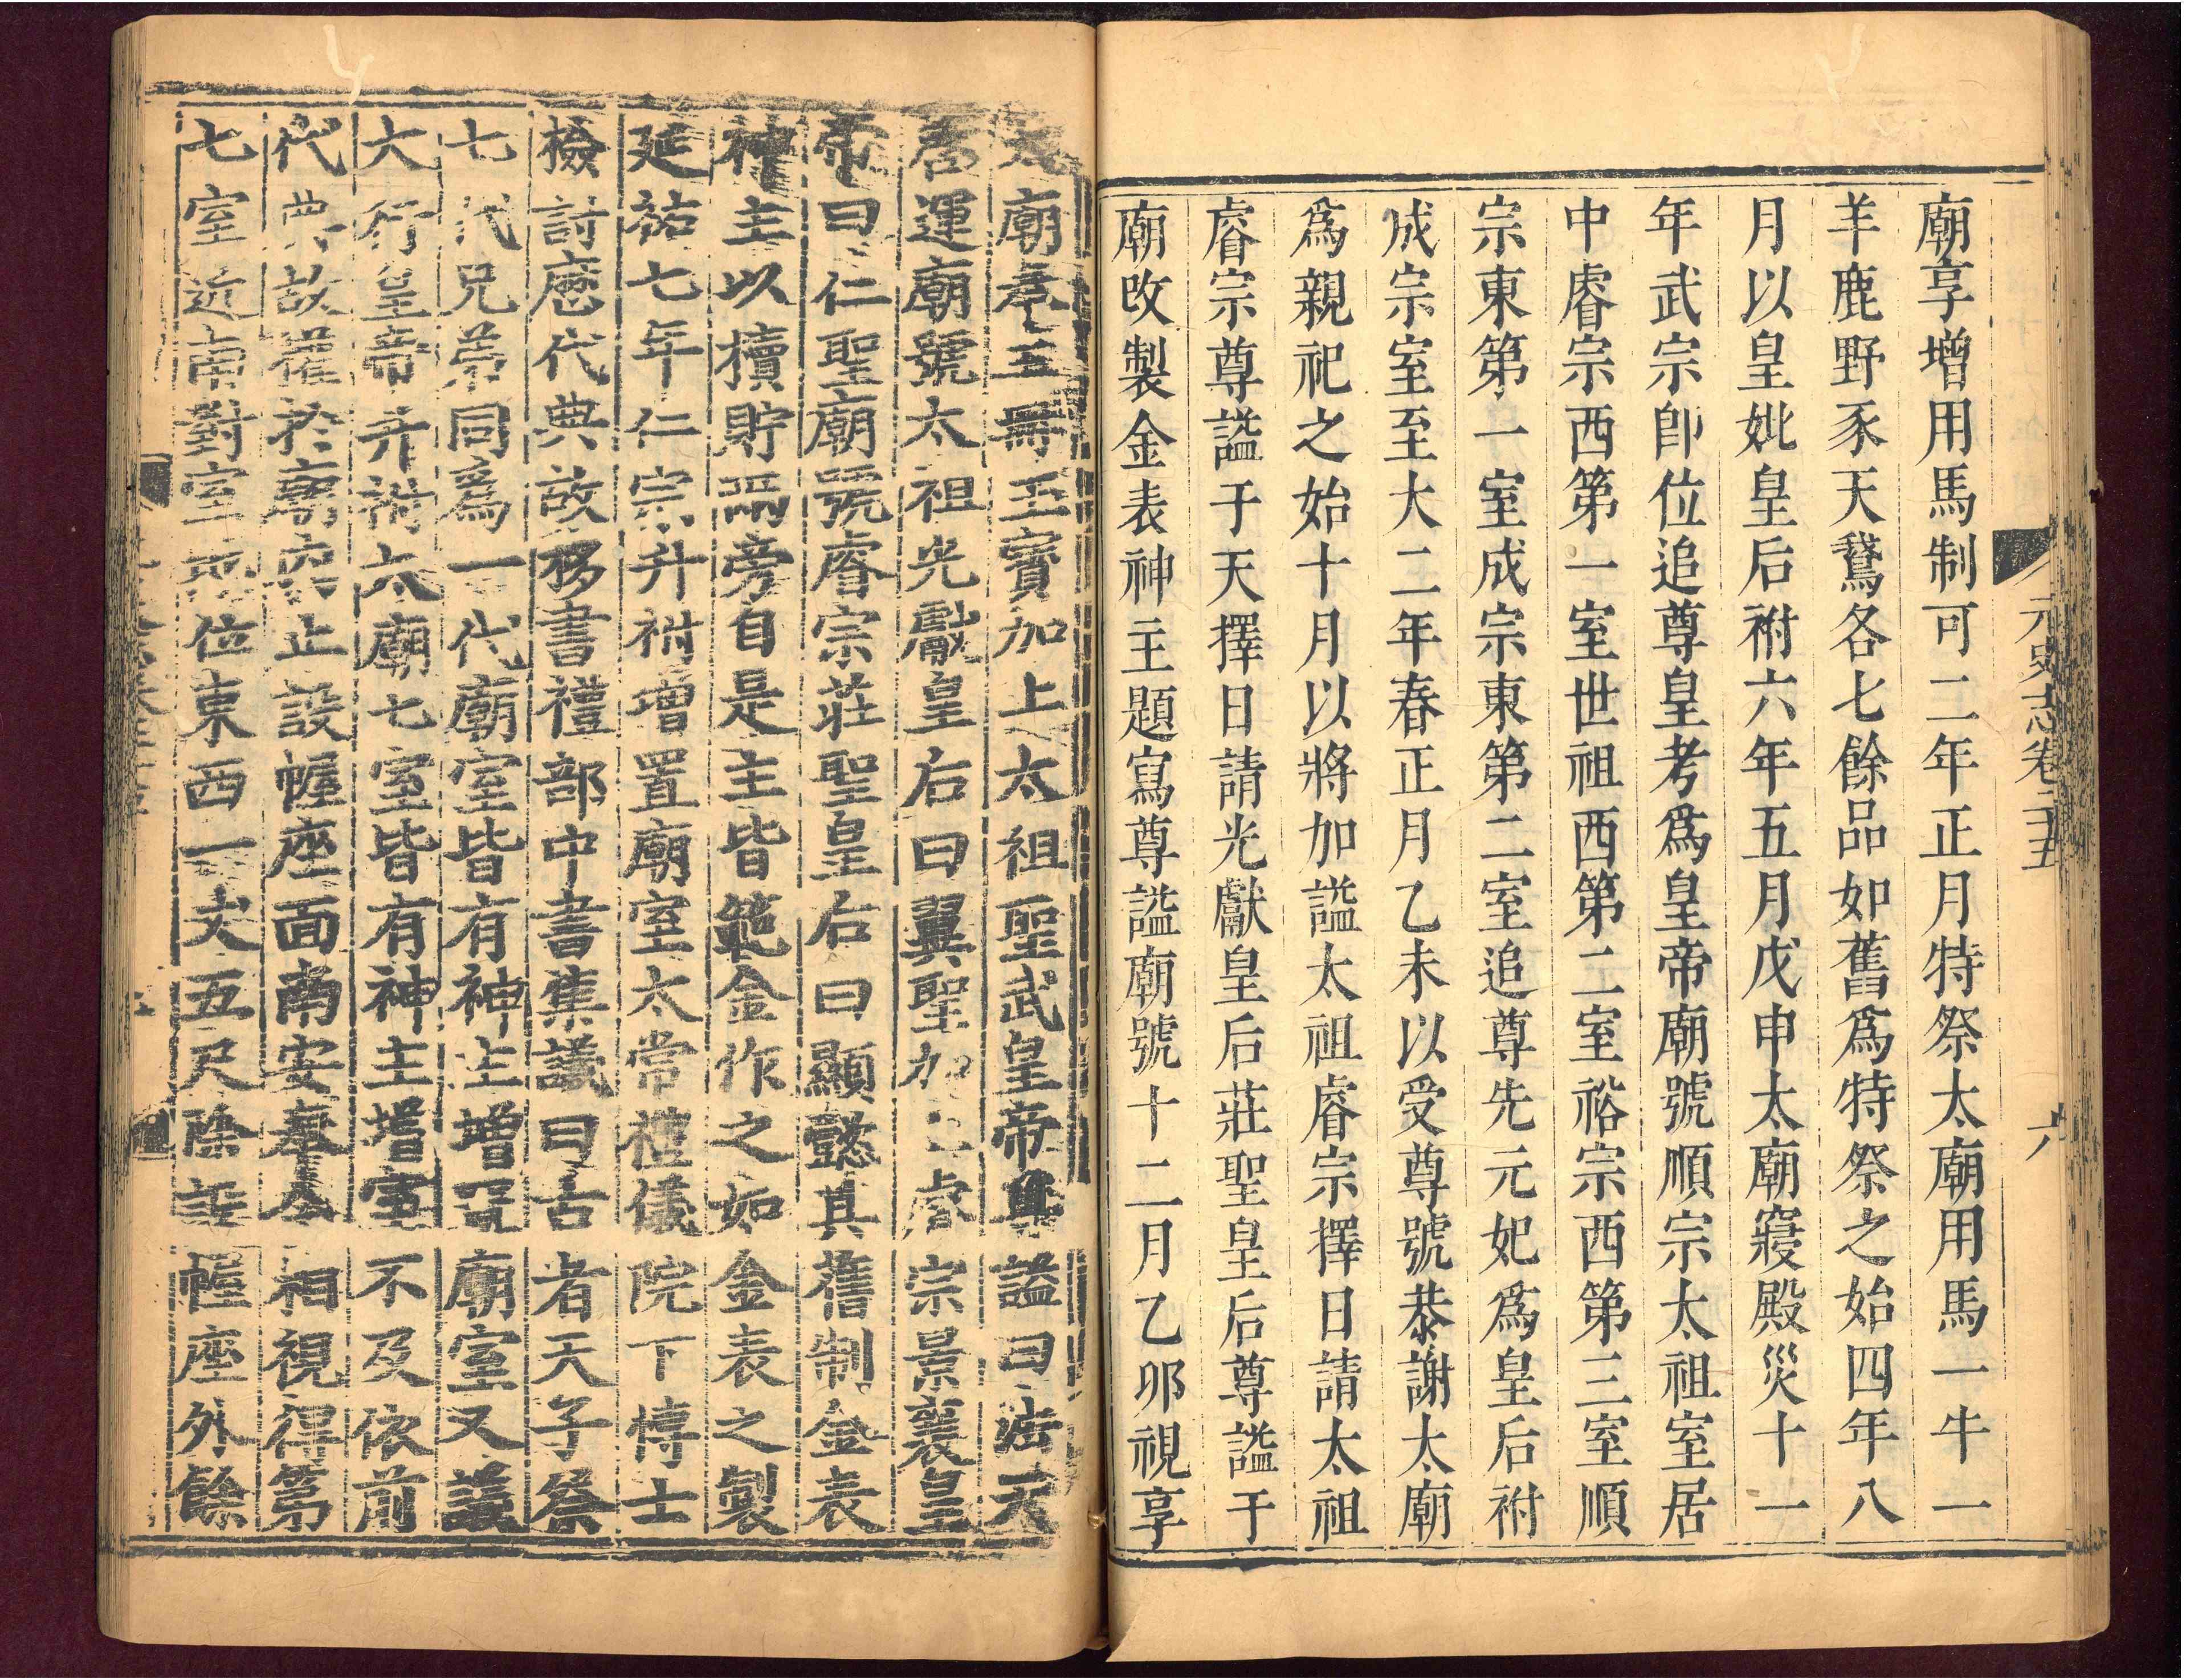 元史志卷二十五
六
廟享增用馬制可二年正月特祭太廟用馬一牛一
羊鹿野豕天鵞各七餘品如舊爲特祭之始四年八
月以皇妣皇后祔六年五月戊申太廟寢殿災十一
年武宗卽位追尊皇考爲皇帝廟號順宗太祖室居
中睿宗西第一室世祖西第二室裕宗西第三室順
宗東第一室成宗東第二室追尊先元妃爲皇后祔
成宗室至大二年春正月乙未以受尊號恭謝太廟
爲親祀之始十月以將加謚太祖睿宗擇日請太祖
睿宗尊謚于天擇日請光獻皇后莊聖皇后尊謚于
廟改製金表神主題寫尊謚廟號十二月乙卯親享
廟奉玉冊玉寶加上太祖聖武皇帝尊謚曰法天
啓運廟號太祖光獻皇后曰翼聖加上睿宗景襄皇
帝曰仁聖廟號睿宗莊聖皇后曰顯懿其舊制金表
神主以櫝貯兩旁自是主皆範金作之如金表之製
延祐七年仁宗升祔增置廟室太常禮儀院下博士
檢討歷代典故移書禮部中書集議曰古者天子祭
七代兄弟同爲一代廟室皆有神主增置廟室又議
大行皇帝升祔太廟七室皆有神主增室不及依前
代典故權於廟內止設幄座面南安奉今相視得第
七室近南對室地位東西一丈五尺除設幄座外餘